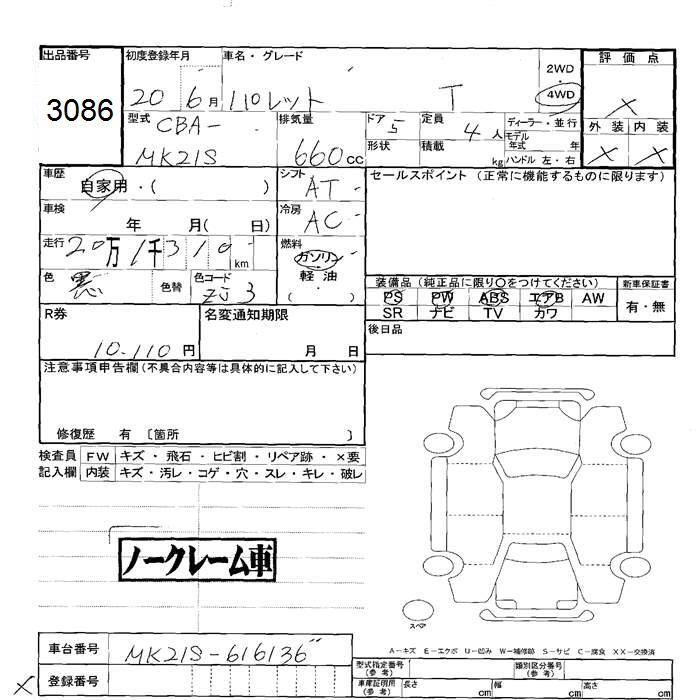 出品番号
3086
初度登録年月
20 6月
車名・グレード
パレット T
2WD
・
4WD
評価点
×
外装 内装
× ×
型式
CBA-
MK21S
排気量
660cc
ドア
5
定員
4人
形状
積載
kg
ディーラー・並行
モデル
年式 年
ハンドル 左・右
車歴
自家用・( )
シフト
AT
セールスポイント (正常に機能するものに限ります)
車検
年 月( 日)
冷房
AC
走行
20万1千310km
燃料
ガソリン
軽油
( )
色
黒
色替
色コード
ZJ3
装備品 (純正品に限り○をつけてください)
PS PW ABS エアB AW
SR ナビ TV カワ
新車保証書
有・無
R券
10.110円
名変通知期限
月 日
後日品
注意事項申告欄(不具合内容等は具体的に記入して下さい)
修復歴 有 〔箇所 〕
検査員 FW キズ・飛石・ヒビ割・リペア跡・×要
記入欄 内装 キズ・汚レ・コゲ・穴・スレ・キレ・破レ
ノークレーム車
スペア
A-キズ E-エクボ U-凹み W-補修跡 S-サビ C-腐食 XX-交換済
車台番号
MK21S-616136
登録番号
×
型式指定番号
(参考)
類別区分番号
(参考)
車庫証明用
(参考)
長さ cm
幅 cm
高さ cm